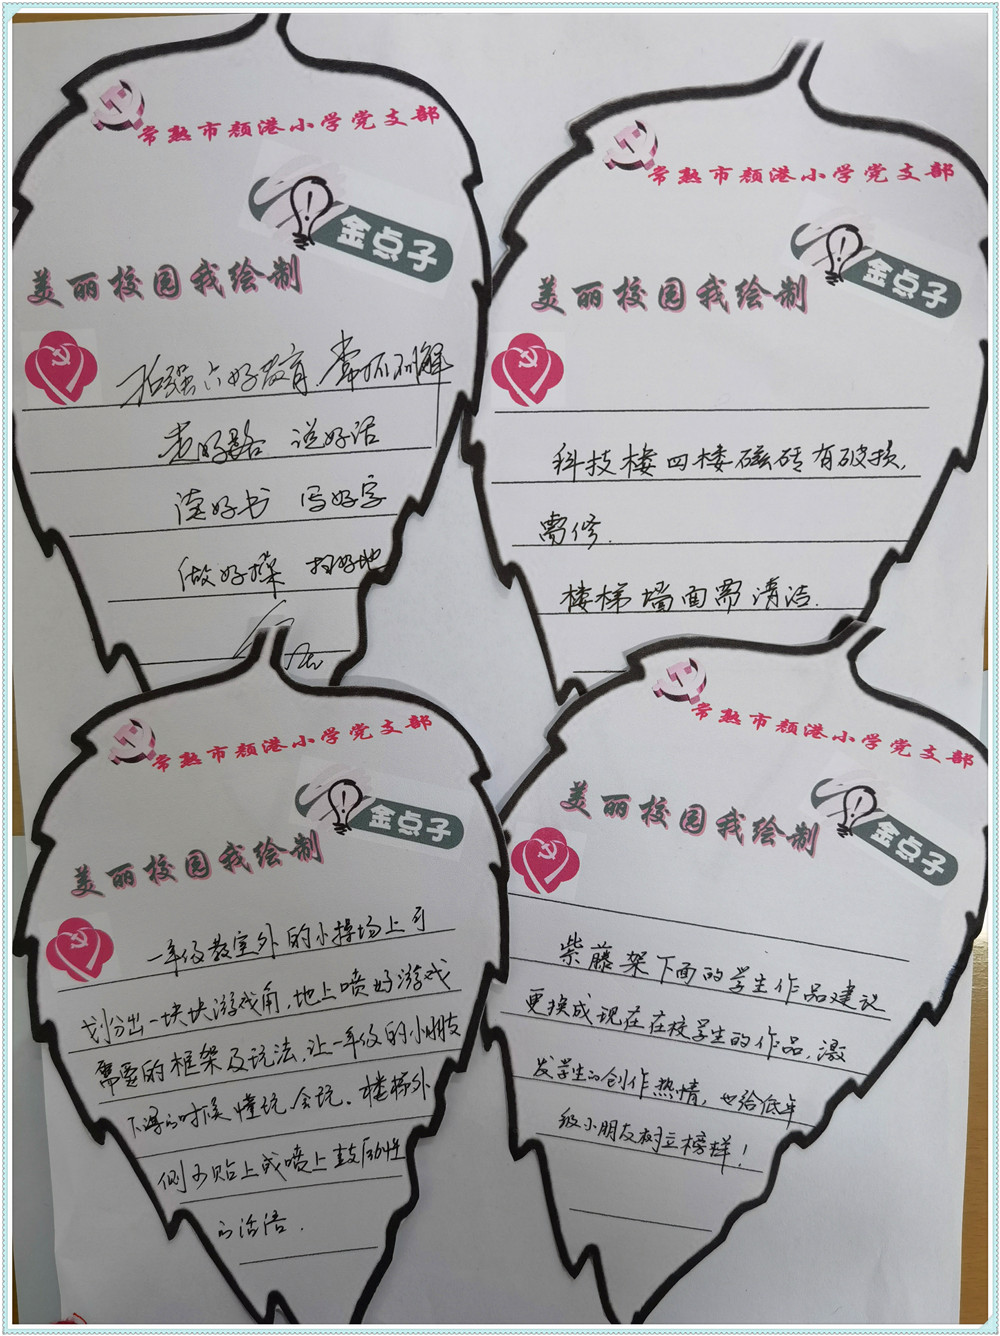 常熟市颜港小学党支部
金点子
美丽校园我绘制
加强六好教育 常抓不懈
走好路 说好话
读好书 写好字
做好操 扫好地
常熟市颜港小学党支部
金点子
美丽校园我绘制
科技楼四楼磁砖有破损,
需修.
楼梯墙面需清洁.
常熟市颜港小学党支部
金点子
美丽校园我绘制
一年级教室外的小操场上可
划分出一块块游戏角,地上喷好游戏
需要的框架及玩法,让一年级的小朋友
下课的时候懂玩、会玩。楼梯外
侧可贴上或喷上鼓励性
的话语.
常熟市颜港小学党支部
美丽校园我绘制
金点子
紫藤架下面的学生作品建议
更换成现在在校学生的作品,激
发学生的创作热情,也给低年
级小朋友树立榜样!